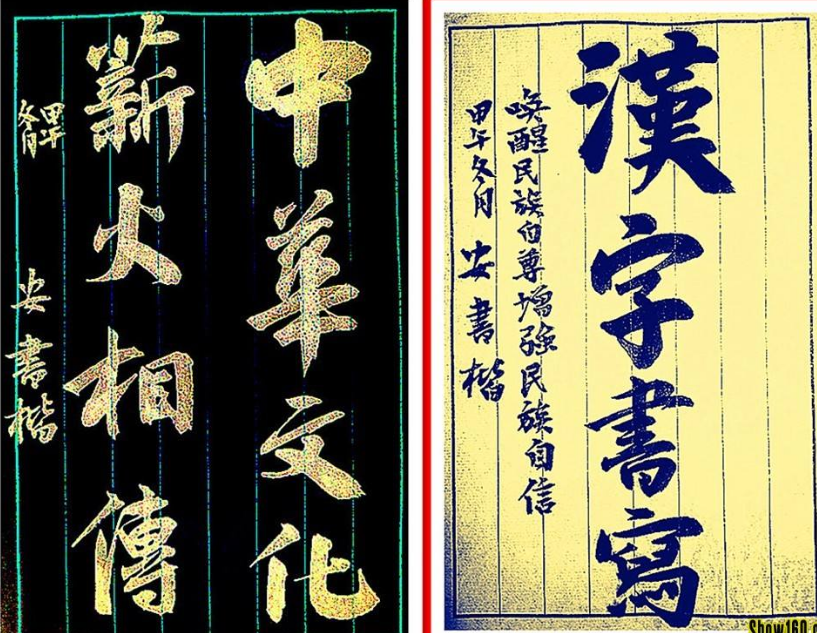 中華文化
薪火相傳
甲午冬月
安書楷
漢字書寫
喚醒民族自尊增強民族自信
甲午冬月 安書楷